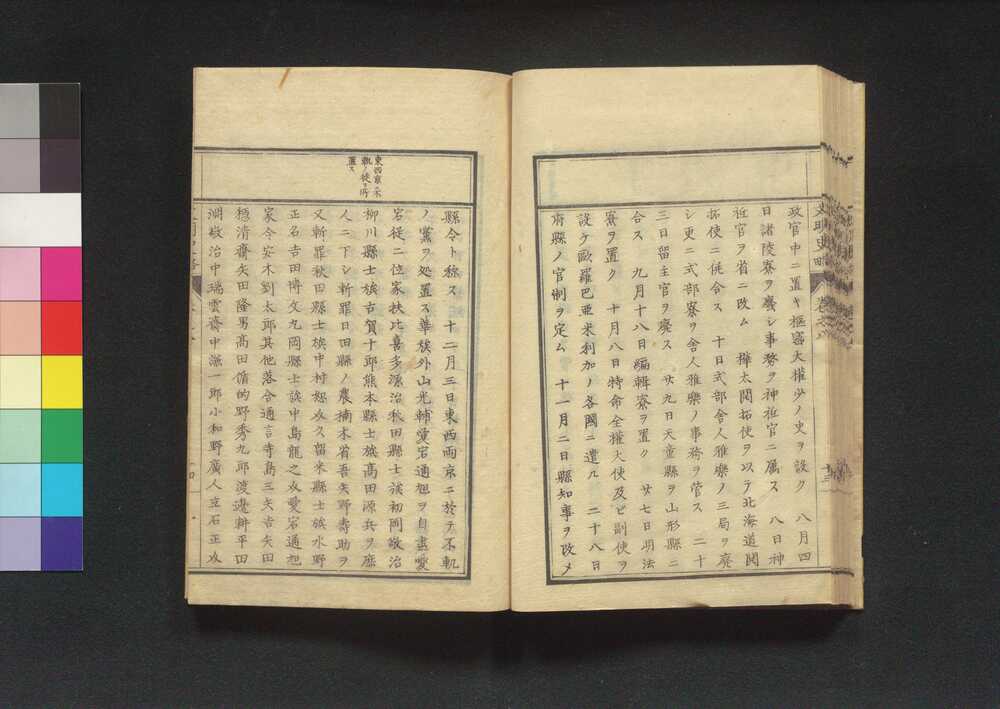 政官中ニ置キ樞密大權少ノ史ヲ設ク　八月四
日諸陵寮ヲ廢シ事務ヲ神祇官ニ屬ス　八日神
祇官ヲ省ニ改ム　樺太開拓使ヲ以テ北海道開
拓使ニ併合ス　十日式部舍人雅樂ノ三局ヲ廢
シ更ニ式部寮ヲ舍人雅樂ノ事務ヲ管ス　二十
三日留主官ヲ廢ス　廿九日天童縣ヲ山形縣ニ
合ス　九月十八日編輯寮ヲ置ク　廿七日明法
寮ヲ置ク　十月八日特命全權大使及ビ副使ヲ
設ケ歐羅巴亜米利加ノ各國ニ遣ル　二十八日
府縣ノ官制ヲ定ム　十一月二日縣知事ヲ改メ
東西京不
軌ノ徒ヲ所
置ス
縣令ト称ス　十二月三日東西両京ニ於テ不軌
ノ黨ヲ処置ス華族外山光輔愛宕通旭ヲ自盡愛
宕從二位家扶比喜多源治秋田縣士族初岡敬治
柳川縣士族古賀十郎熊本縣士族高田源兵ヲ庶
人ニ下シ斬罪日田縣ノ農楠本省吾矢野壽助ヲ
又斬罪秋田縣士族中村恕攵久留米縣士族水野
正名吉田博文九岡縣士族中島龍之攵愛宕通旭
家令安木劉太郎其他落合通言寺島三矢𠮷矢田
穏清齋矢田隆男高田脩的野秀九郎渡邊耕平田
淵敬治中瑞雲齋中源一郎小和野廣人立石正攵